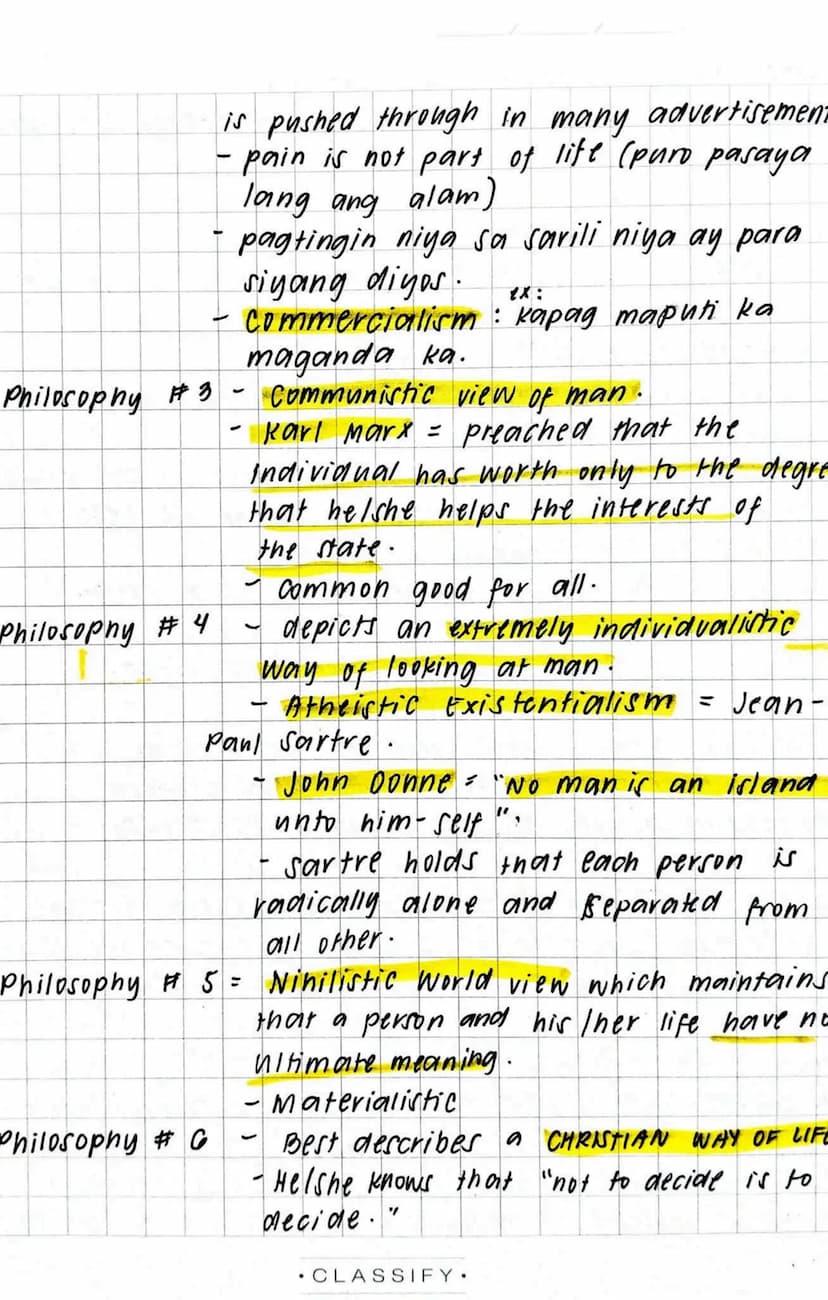 is pushed through in many advertisement
- pain is not part of life (puro pasaya
lang ang alam)
- pagtingin niya sa sarili niya ay para
siyang diyos.
- Commercialism : ex: kapag maputi ka
maganda ka.
Philosophy # 3 - Communistic view of man.
- Karl Marx = preached that the
individual has worth only to the degre
that he/she helps the interests of
the state.
- common good for all.
Philosophy # 4 - depicts an extremely individualistic
way of looking at man.
- Atheistic Existentialism = Jean-
Paul Sartre.
- John Donne = "No man is an island
unto him-self".
- Sartre holds that each person is
radically alone and separated from
all other.
Philosophy # 5 = Nihilistic World view which maintains
that a person and his/her life have no
ultimate meaning.
- Materialistic
Philosophy # 6 - Best describes a CHRISTIAN WAY OF LIFE
- He/she knows that "not to decide is to
decide."
• CLASSIFY •